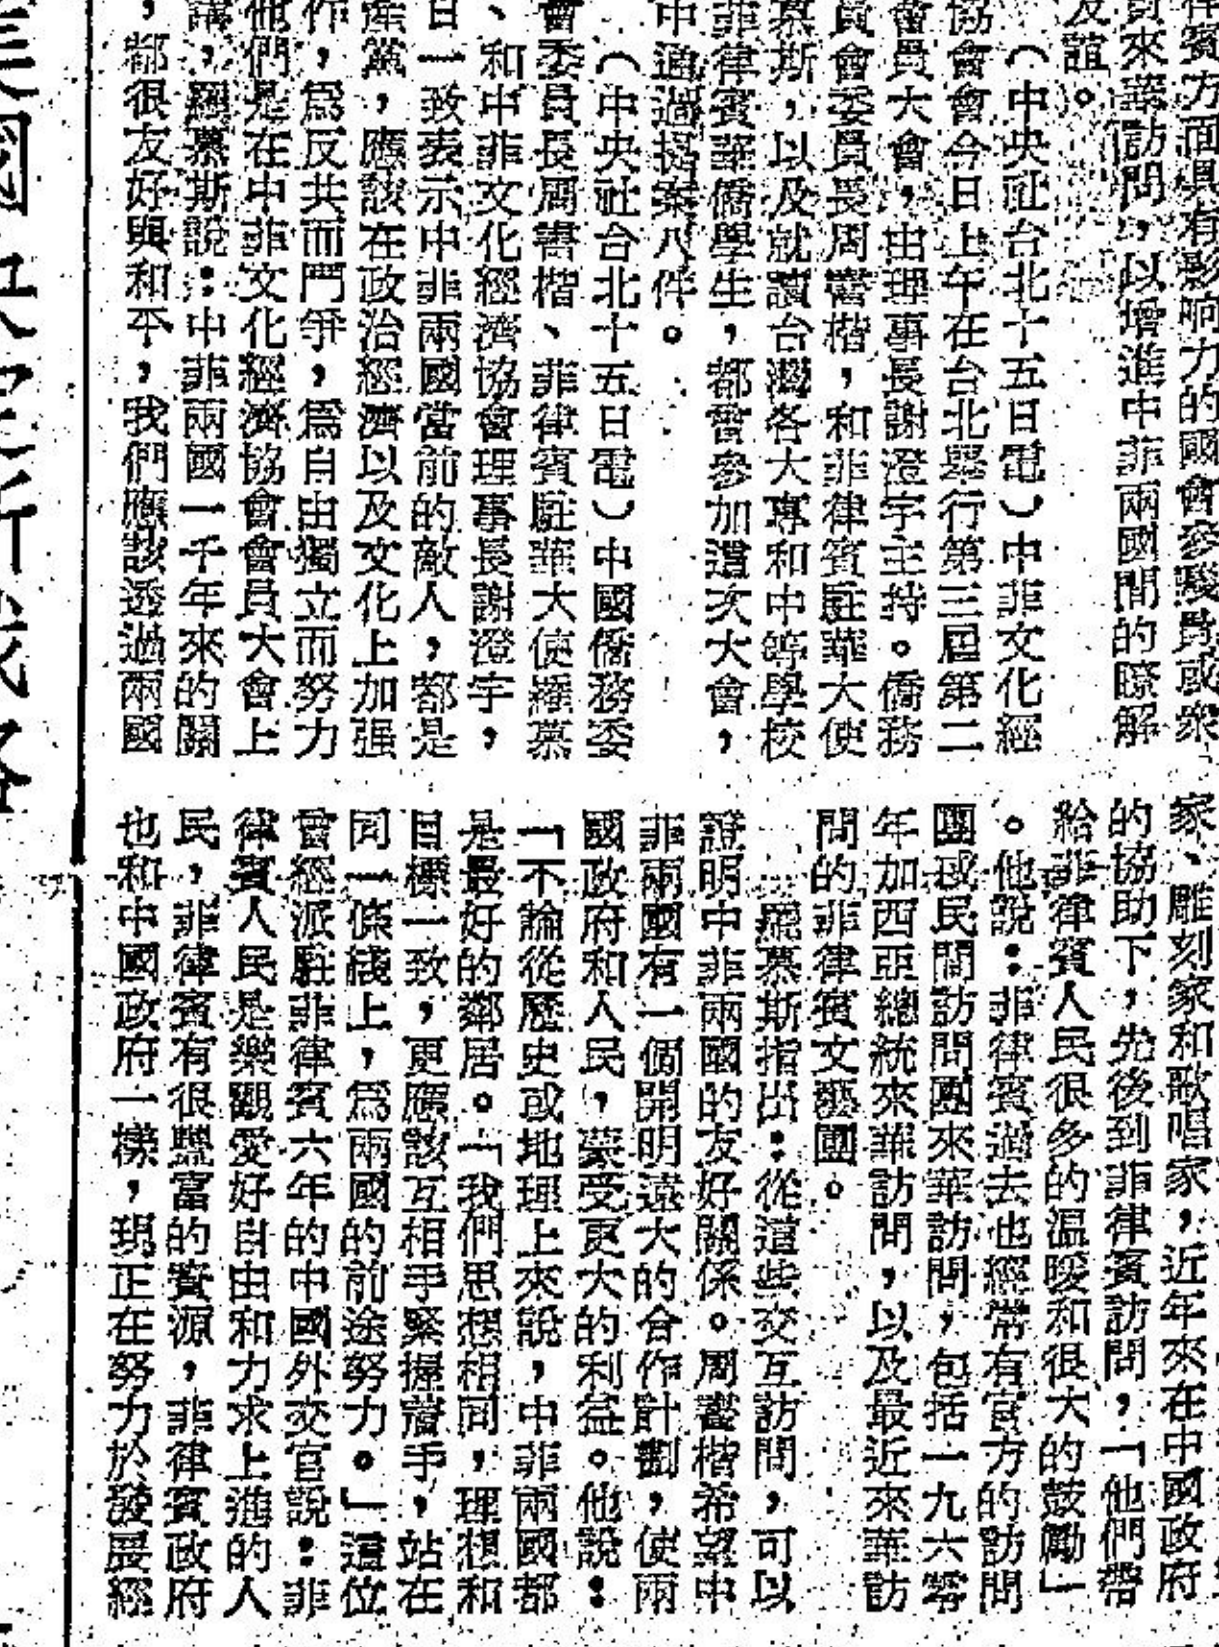 律賓方面具有影响力的國會參議員或衆
員來華訪問，以增進中菲兩國間的瞭解
友誼。
（中央社台北十五日電）中菲文化經
協會會今日上午在台北舉行第三屆第二
會員大會，由理事長謝澄宇主持。僑務
員會委員長周書楷，和菲律賓駐華大使
慕斯，以及就讀台灣各大專和中等學校
菲律賓華僑學生，都曾參加這次大會，
中通過提案八件。
（中央社台北十五日電）中國僑務委
會委員長周書楷、菲律賓駐華大使羅慕
、和中菲文化經濟協會理事長謝澄宇，
日一致表示中菲兩國當前的敵人，都是
產黨，應該在政治經濟以及文化上加强
作，爲反共而鬥爭，爲自由獨立而努力
他們是在中菲文化經濟協會會員大會上
講，羅慕斯說：中菲兩國一千年來的關
，都很友好與和平，我們應該透過兩國
家、雕刻家和歌唱家，近年來在中國政府
的協助下，先後到菲律賓訪問，「他們帶
給菲律賓人民很多的溫暖和很大的鼓勵」
。他說：菲律賓過去也經常有官方的訪問
團或民間訪問團來華訪問，包括一九六零
年加西亞總統來華訪問，以及最近來華訪
問的菲律賓文藝團。
羅慕斯指出：從這些交互訪問，可以
證明中菲兩國的友好關係。周書楷希望中
菲兩國有一個開明遠大的合作計劃，使兩
國政府和人民，蒙受更大的利益。他說：
「不論從歷史或地理上來說，中菲兩國都
是最好的鄰居。「我們思想相同，理想和
目標一致，更應該互相手緊握着手，站在
同一條綫上，爲兩國的前途努力。」這位
曾經派駐菲律賓六年的中國外交官說：菲
律賓人民是樂觀愛好自由和力求上進的人
民，菲律賓有很豐富的資源，菲律賓政府
也和中國政府一樣，現正在努力於發展經